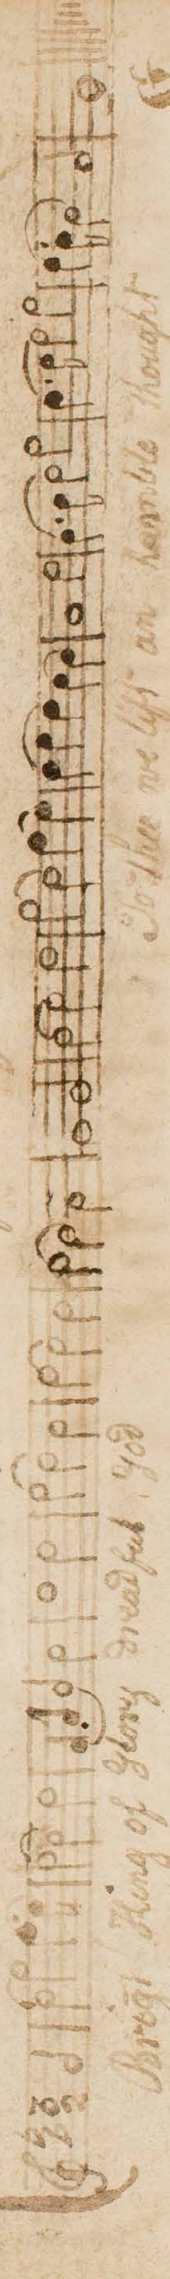 Bright King of Glory dreadful God
To Thee we lift an humble thought